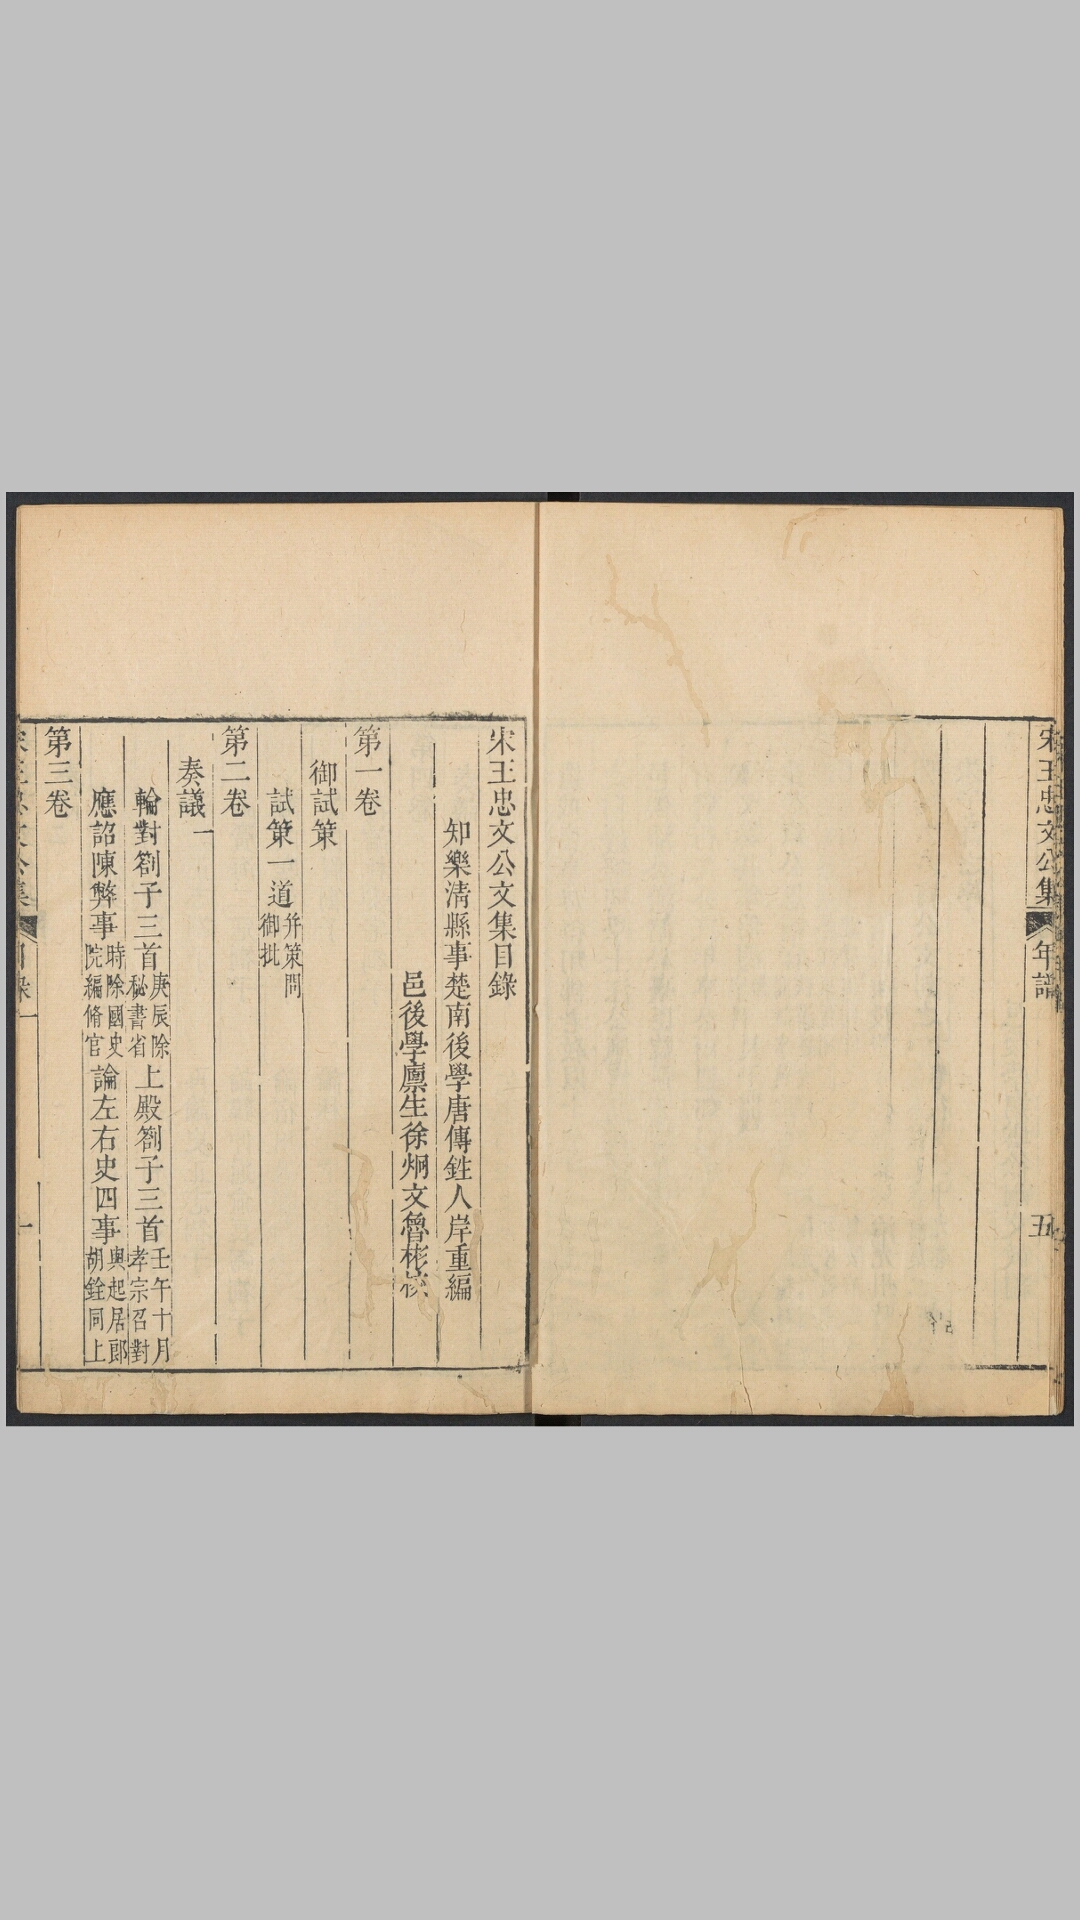 宋王忠文公集 年譜 五
宋王忠文公文集目錄
知樂清縣事楚南後學唐傳鉎人岸重編
邑後學廩生徐炯文魯彬校
第一卷
御試策
試策一道 并策問 御批
第二卷
奏議一
輪對劄子三首 庚辰除 秘書省 上殿劄子三首 壬午十月 孝宗召對
應詔陳弊事 時除國史 院編脩官 論左右史四事 與起居郎 胡銓同上
第三卷
宋王忠文公集 目錄一 一